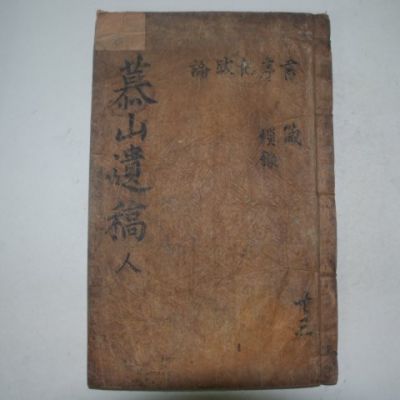 慕山遺稿
人
書序記跋論
箴
瑣錄
共三